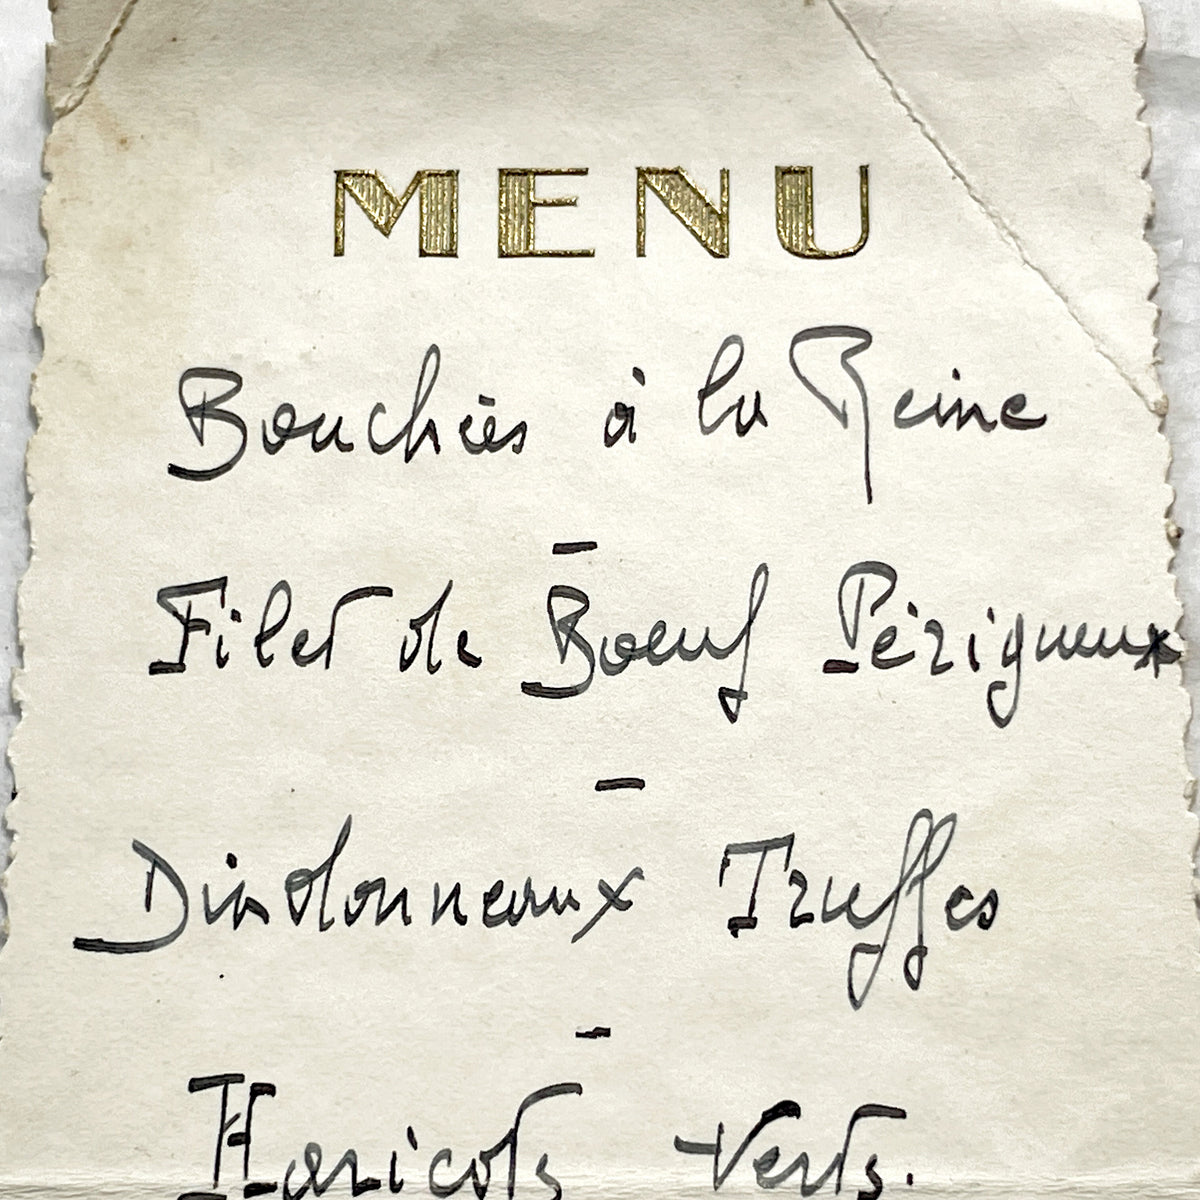 MENU
Bouchées à la Reine
-
Filet de Boeuf Périgueux
-
Dindonneaux Truffes
-
Haricots Verts.